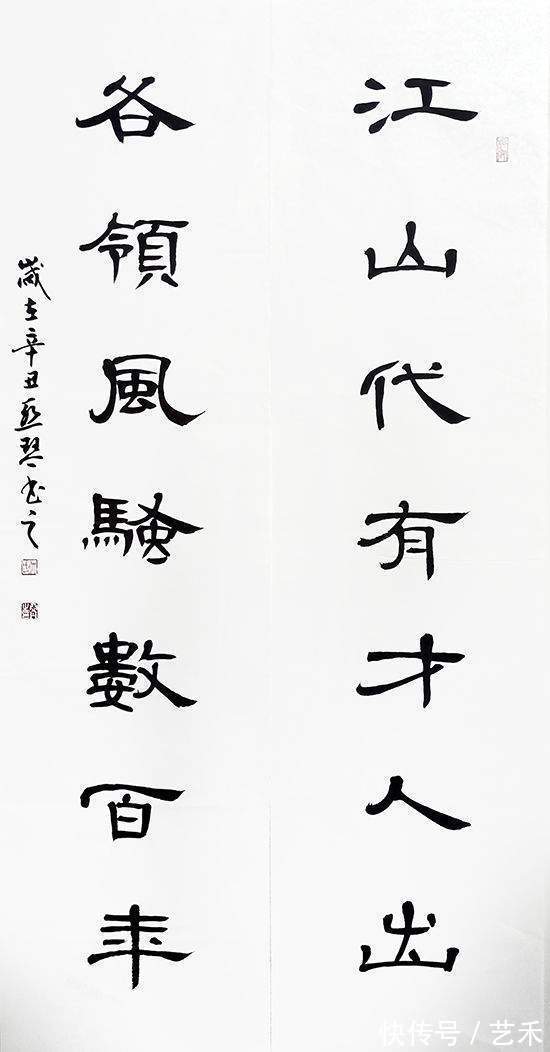 江山代有才人出
各領風騷數百年
歲在辛丑 琴書之
快传号 / 艺禾